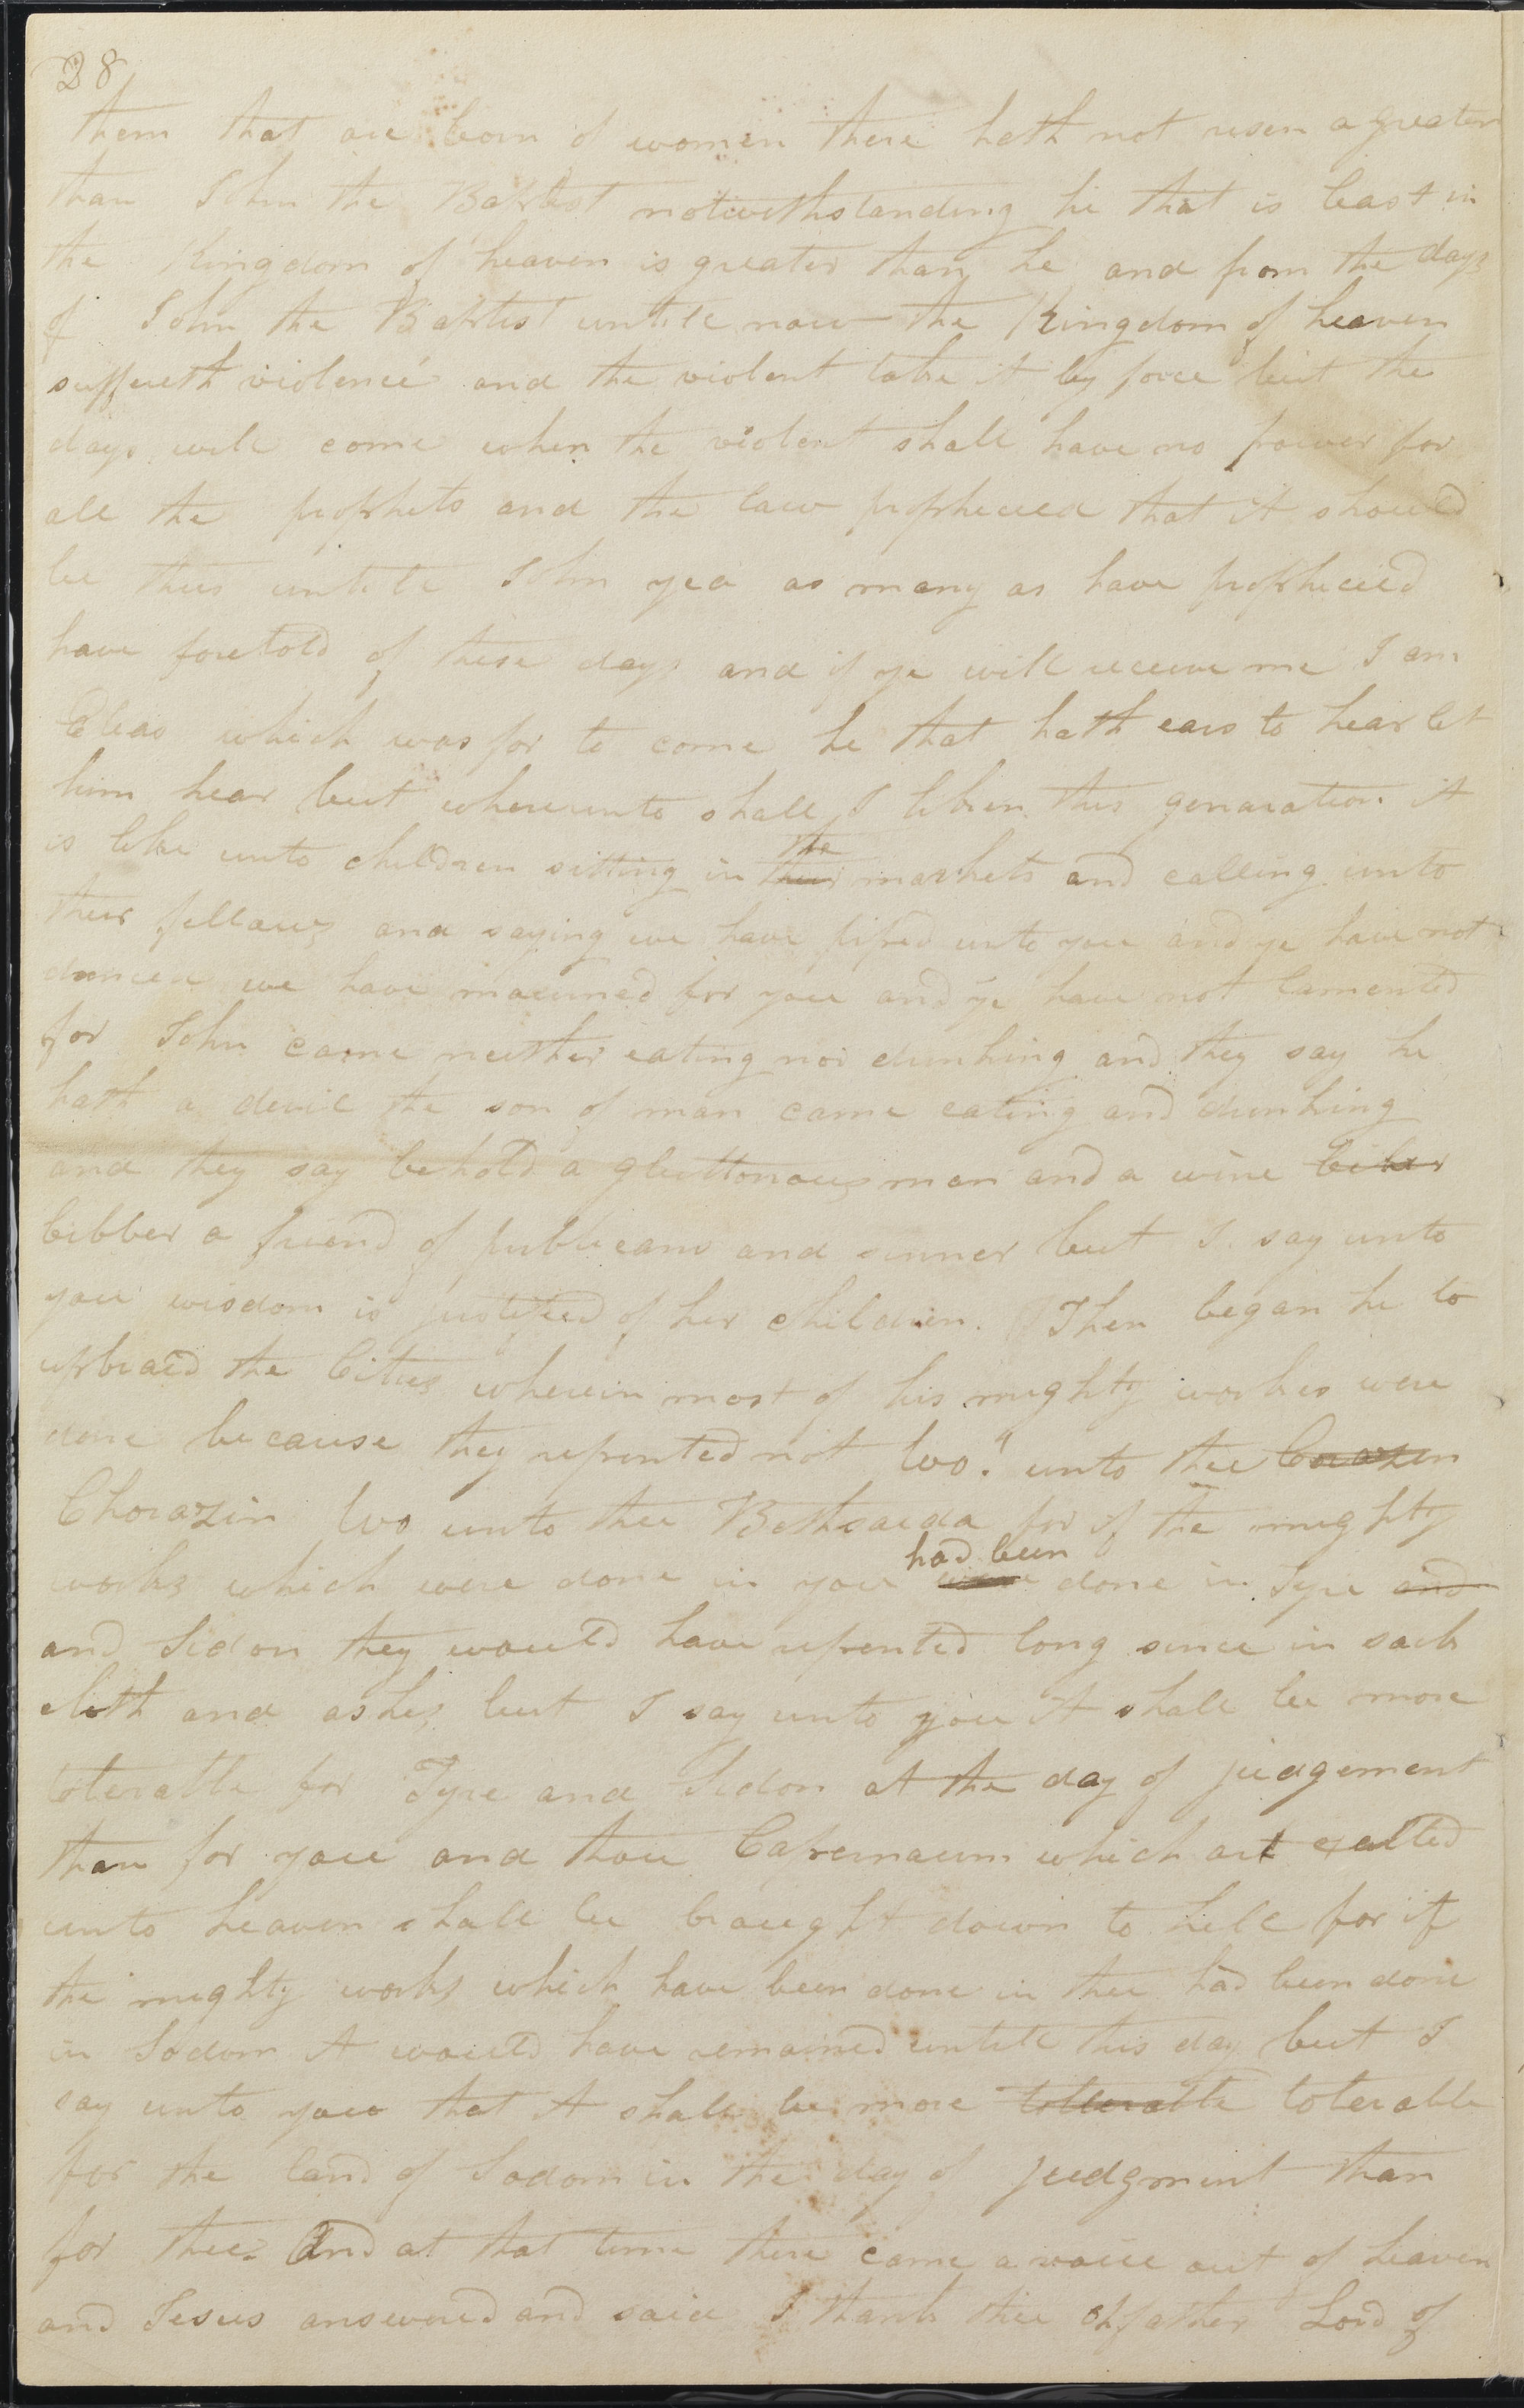 28
them that are born of women there hath not risen a greater
than John the Baptist notwithstanding he that is least in
the Kingdom of heaven is greater than he and from the days
of John the Baptist untill now the Kingdom of heaven
suffereth violence and the violent take it by force but the
days will come when the violent shall have no power for
all the prophets and the law prophecied that it should
be thus untill John yea as many as have prophecied
have foretold of these days and if ye will receive me I am
Elias which was for to come he that hath ears to hear let
him hear but whereunto shall I liken this genaration it
is like unto children sitting in their the markets and calling unto
their fellows and saying we have piped unto you and ye have not
danced we have mourned for you and ye have not lamented
for John came neither eating nor drinking and they say he
hath a devil the son of man came eating and drinking
and they say behold a gluttonous man and a wine biber
bibber a friend of publicans and sinner but I say unto
you wisdom is justified of her children. Then began he to
upbraid the Cities wherein most of his mighty works were
done because they repented not Wo! unto thee Corazin
Chorazin Wo unto thee Bethsaida for if the mighty
works which were done in you were had been done in Tyre and
and Sidon they would have repented long since in sack
cloth and ashes but I say unto you it shall be more
tolerable for Tyre and Sidon at the day of judgement
than for you and thou Capernaum which art exalted
unto heaven shall be brought down to hell for if
the mighty works which have been done in thee had been done
in Sodom it would have remained untill this day but I
say unto you that it shall be more tollerable tolerable
for the land of Sodom in the day of judgment than
for thee. And at that time there came a voice out of heaven
and Jesus answered and said I thank thee oh father Lord of